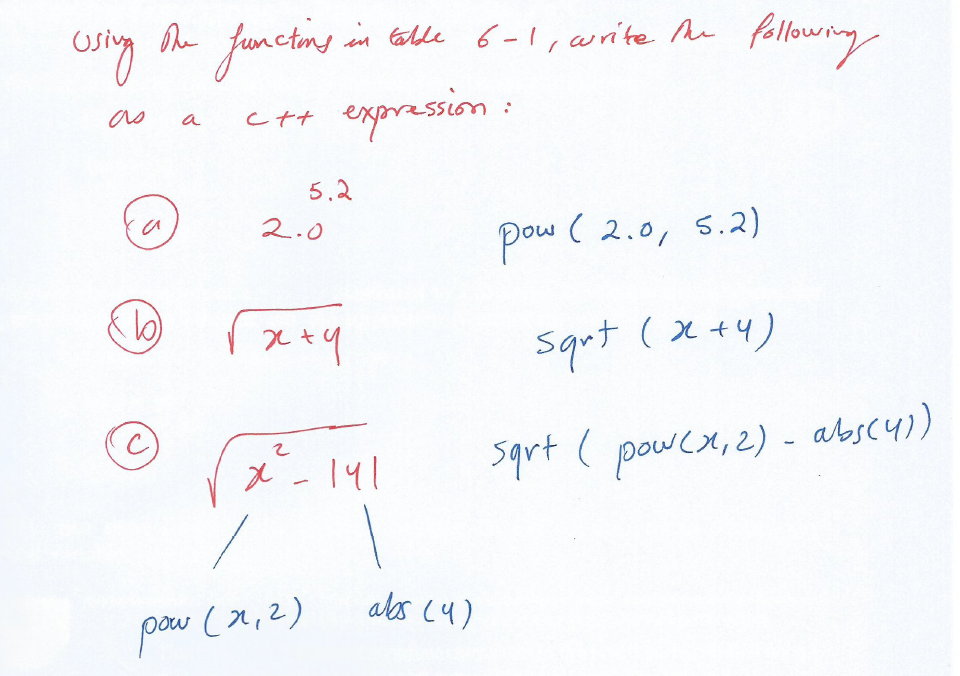 Using the functions in table 6-1, write the following
as a c++ expression:
(a) 2.0^5.2 pow (2.0, 5.2)
(b) √(x+y) sqrt (x+y)
(c) √(x² - |y|) sqrt ( pow(x,2) - abs(y))
pow (x,2) abs (y)